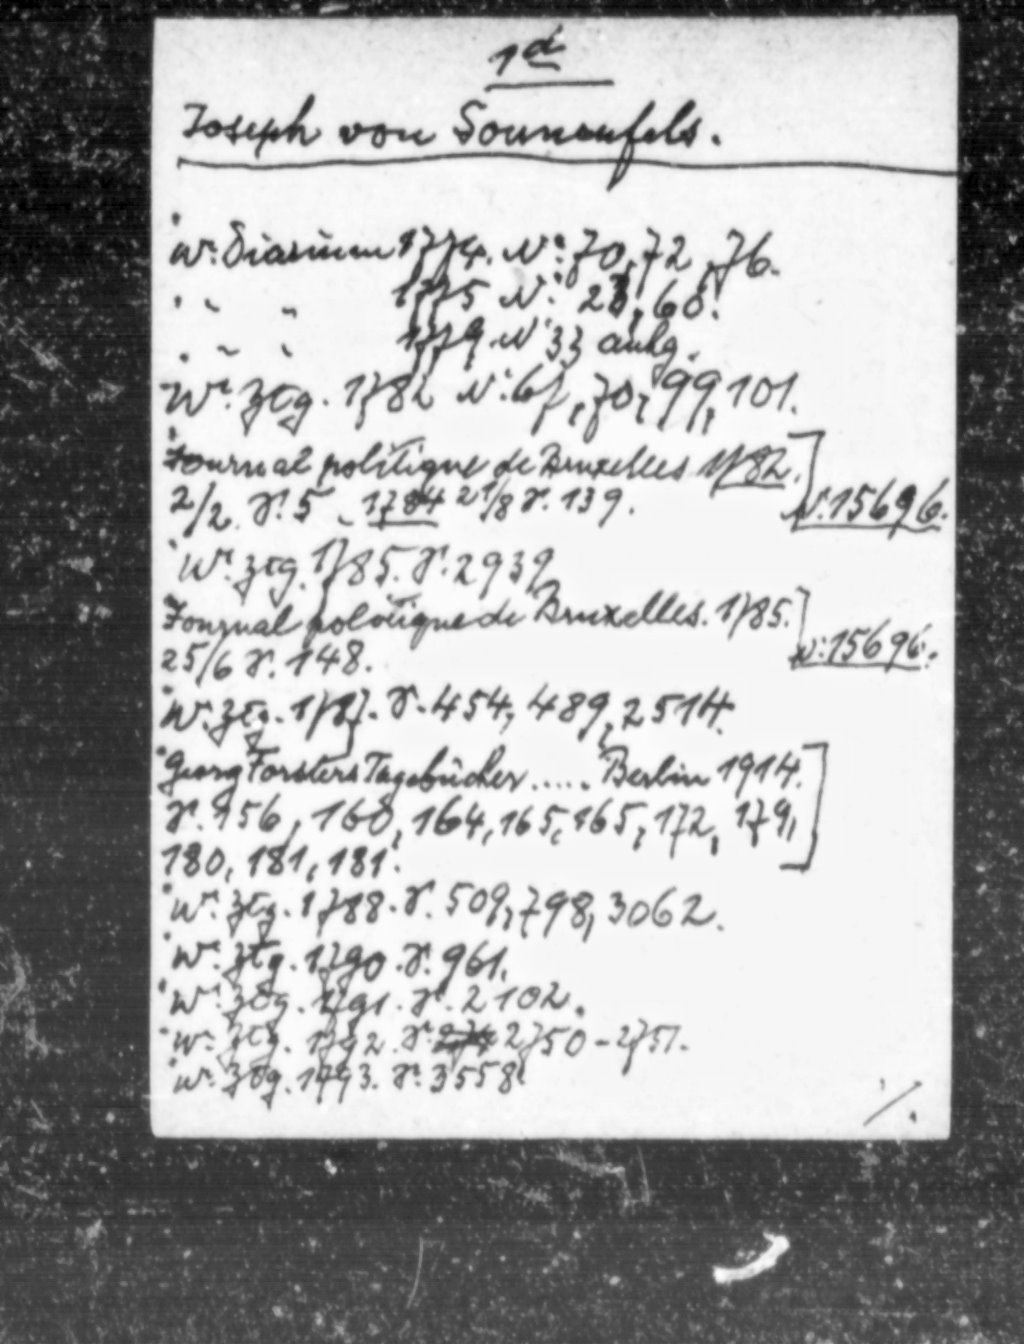 1d
Joseph von Sonnenfels.
W. Diarium 1774. N: 70, 72, 76.
" " 1775 N: 23, 68.
" " 1779. N 33 anhg.
Wr. Ztg. 1782 N: 67, 70, 99, 101.
Journal politique de Bruxelles 1782.
2/2. S. 5 - 1784 21/8 S. 139.
N: 15696.
Wr. Ztg. 1785. S. 2939
Journal politique de Bruxelles. 1785.
25/6 S. 148.
N: 15696.
Wr. Ztg. 1787. S. 454, 489, 2514.
Georg Forsters Tagebücher ..... Berlin 1914.
S. 156, 160, 164, 165, 165, 172, 179,
180, 181, 181.
Wr. Ztg. 1788. S. 509, 798, 3062.
Wr. Ztg. 1790. S. 961.
Wr. Ztg. 1791. S. 2102.
Wr. Ztg. 1792. S. 2750-2751.
Wr. Ztg. 1793. S. 3558
./.